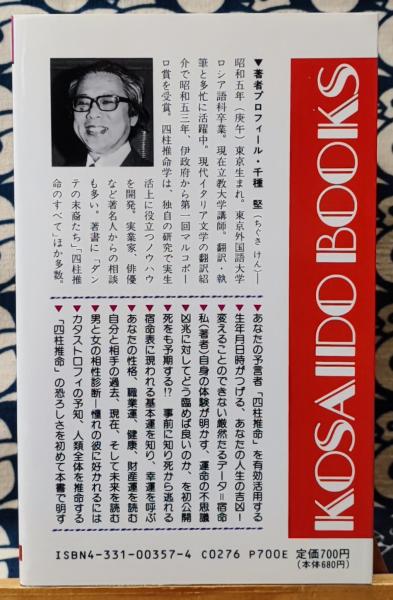 KOSAIDO BOOKS
▼著者プロフィール・千種 堅(ちぐさ けん)―
昭和五年(庚午)東京生まれ。東京外国語大学
ロシア語科卒業。現在立教大学講師。翻訳・執
筆と多忙に活躍中。現代イタリア文学の翻訳紹
介で昭和五三年、伊政府から第一回マルコポー
ロ賞を受賞。四柱推命学は、独自の研究で実生
活上に役立つノウハウ
を開発。実業家、俳優
など著名人からの相談
も多い。著書に「ダン
テの末裔たち」「四柱推
命のすべて」ほか多数。
▼あなたの予言者、「四柱推命」を有効活用する
▼生年月日時がつげる、あなたの人生の吉凶―
▼変えることのできない厳然たるデータ=宿命
▼私(著者)自身の体験が明かす、運命の不思議
▼凶兆に対してどう臨めば良いのか、を初公開
▼死をも予期する!? 事前に知り死から逃れる
▼宿命表に現われる基本運を知り、幸運を呼ぶ
▼あなたの性格、職業運、健康、財産運を読む
▼自分と相手の過去、現在、そして未来を読む
▼男と女の相性診断―憧れの彼に好かれるには
▼カタストロフィの予知、人類全体を推命する
▼「四柱推命」の恐ろしさを初めて本書で明す
ISBN4-331-00357-4 C0276 P700E 定価700円
(本体680円)